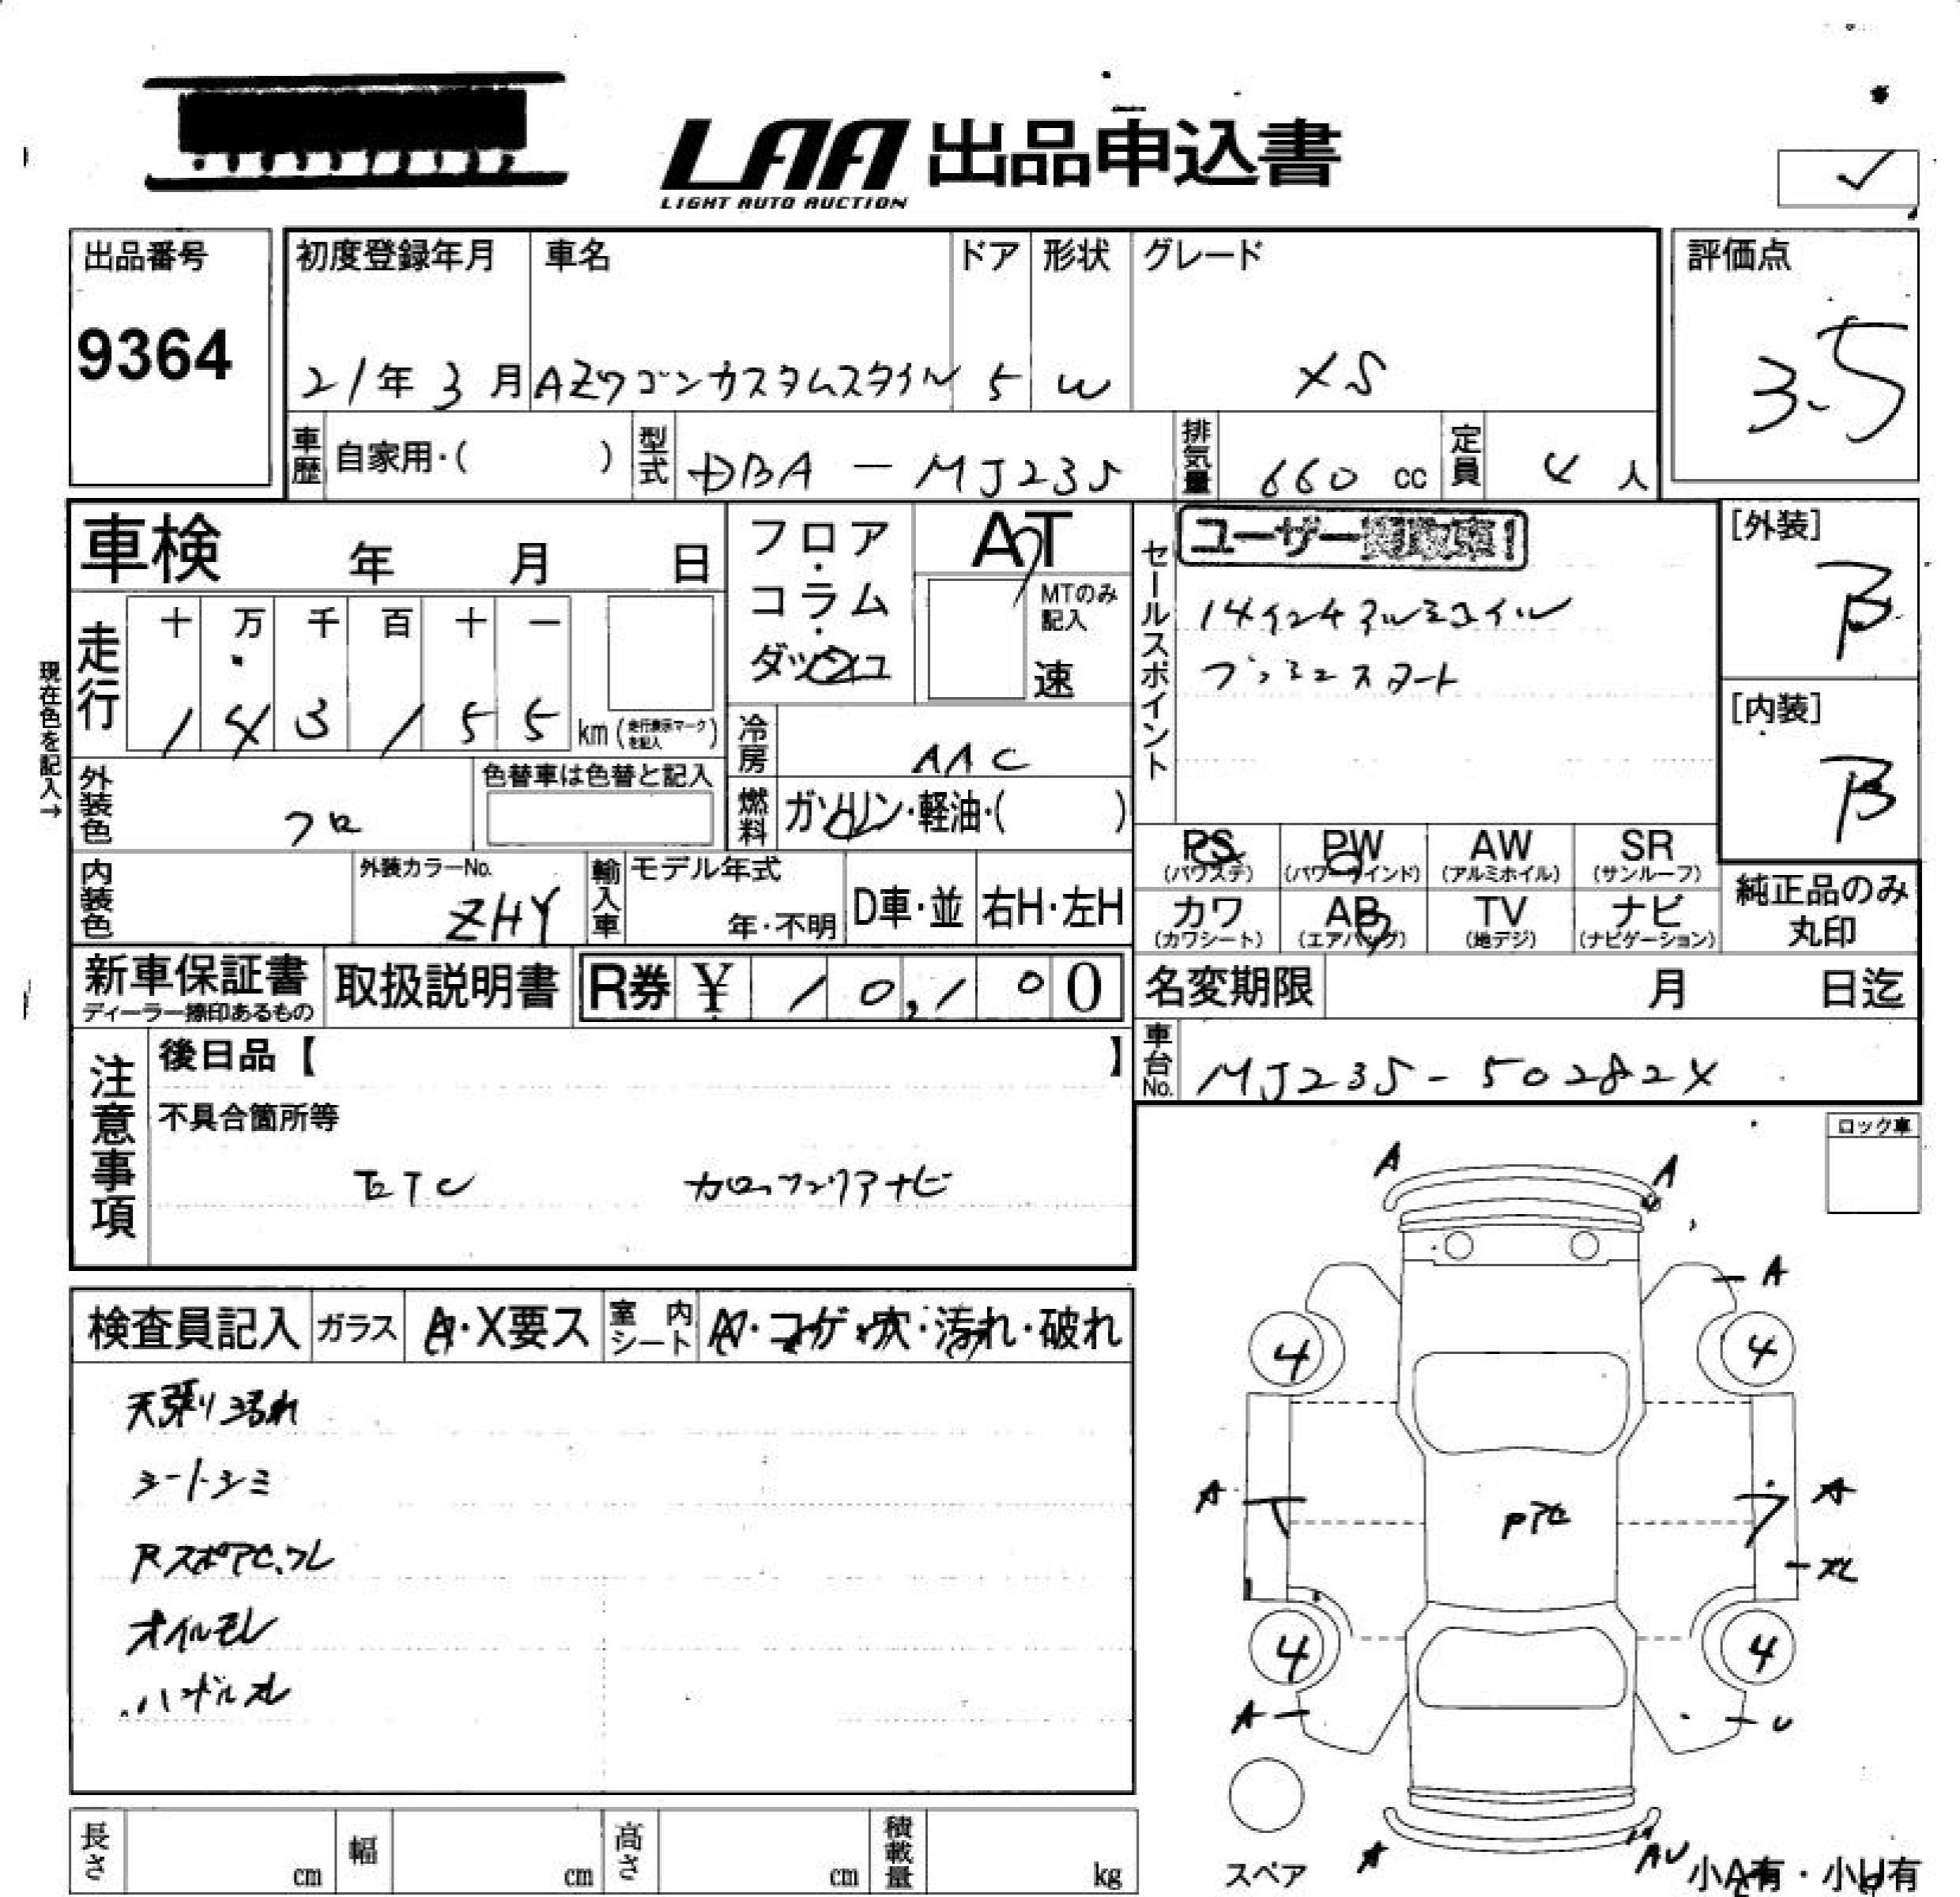 LAA 出品申込書
LIGHT AUTO AUCTION
出品番号
9364
初度登録年月
21年3月
車名
AZワゴンカスタムスタイル
ドア
5
形状
W
グレード
XS
評価点
3.5
車歴 自家用・( )
型式 DBA-MJ23S
排気量 660 cc
定員 4 人
車検 年 月 日
フロア・コラム・ダッシュ
AT
MTのみ記入
速
セールスポイント
ユーザー
14インチアルミホイル
プッシュスタート
[外装]
B
[内装]
B
現在色を記入→
走行
十 万 千 百 十 一
1 4 3 1 5 5 km (走行表示マークを記入)
冷房 AAC
外装色 クロ
色替車は色替と記入
燃料 ガソリン・軽油・( )
内装色
外装カラーNo.
ZHY
輸入車
モデル年式
年・不明
D車・並
右H・左H
PS (パワステ)
PW (パワーウインド)
AW (アルミホイル)
SR (サンルーフ)
カワ (カワシート)
AB (エアバッグ)
TV (地デジ)
ナビ (ナビゲーション)
純正品のみ
丸印
新車保証書
ディーラー捺印あるもの
取扱説明書
R券 ¥ 10,100
名変期限 月 日迄
車台No. MJ23S-50282X
注意事項
後日品【 】
不具合箇所等
ETC カロッツェリアナビ
ロック車
検査員記入
ガラス A・X要ス
室内シート A・コゲ・穴・汚れ・破れ
天張り汚れ
シートシミ
RスポアC、ワレ
オイルモレ
ハンドルスレ
A A
A
4 4
A A
PアC
スレ
4 4
A U
A AU
スペア
小A有・小U有
長さ cm
幅 cm
高さ cm
積載量 kg